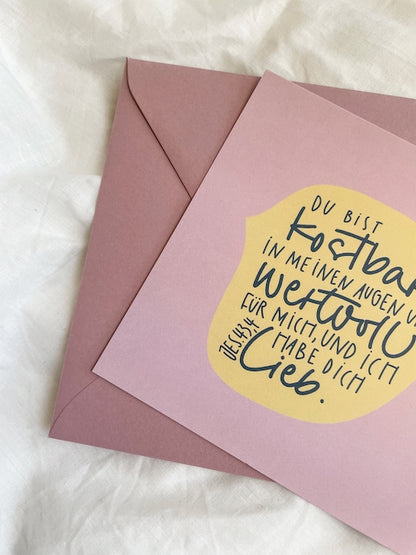 DU BIST
kostbar
IN MEINEN AUGEN U
wertvoll
FÜR MICH, UND ICH
HABE DICH
Lieb.
JES 43,4